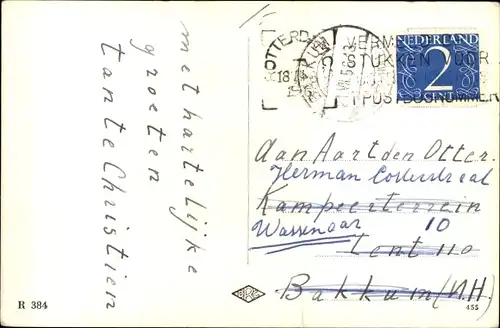 met hartelijke
groeten
tante Christien
R 384
OTTERD
18
VERM
STUKKEN VOOR
POSTBUSNUMMER
NEDERLAND
2
Aan Aart den Otter.
Herman Costerstraat
Kampeerterrein
Wassenaar 10
Tent 110
Bakkum (N.H.)
455